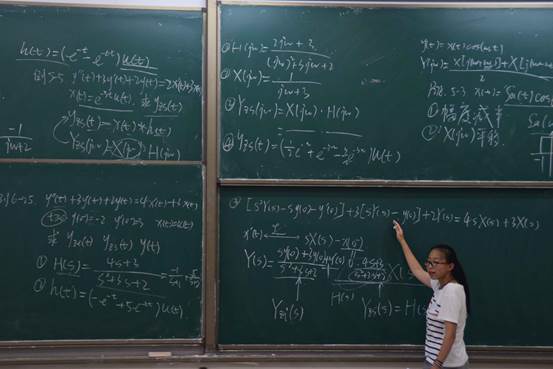 h(t)=(e^{-t}-e^{-2t})u(t)
例5-5 y''(t)+3y'(t)+2y(t)=2x'(t)+3x(t)
x(t)=e^{-3t}u(t). 求 y_{zs}(t)
y_{zs}(t)=x(t)*h(t)
Y_{zs}(jω)=X(jω)·H(jω)
-1/(jω+2)
① H(jω)=(2jω+3)/((jω)²+3jω+2)
② X(jω)=1/(jω+3)
③ Y_{zs}(jω)=X(jω)·H(jω)
④ y_{zs}(t)=
u(t)
y(t)=x(t)cos(ω₀t)
Y(jω)=
2
例5-3 x(t)=
① 幅度减半
② X(jω)平移
例6-25 y''(t)+3y'(t)+2y(t)=4x'(t)+3x(t)
y(0)=-2 y'(0)=3 x(t)=u(t)
求 y_{zi}(t) y_{zs}(t) y(t)
① H(s)=(4s+3)/(s²+3s+2)
② h(t)=(-e^{-t}+5e^{-2t})u(t)
③ [s²Y(s)-sy(0)-y'(0)]+3[sY(s)-y(0)]+2Y(s)=4sX(s)+3X(s)
x'(t) ⟷ sX(s)-x(0)
Y(s)=(sy(0)+3y(0)+y'(0))/(s²+3s+2)+(4s+3)/(s²+3s+2)
Y_{zi}(s)
H(s)
Y_{zs}(s)=H(s)